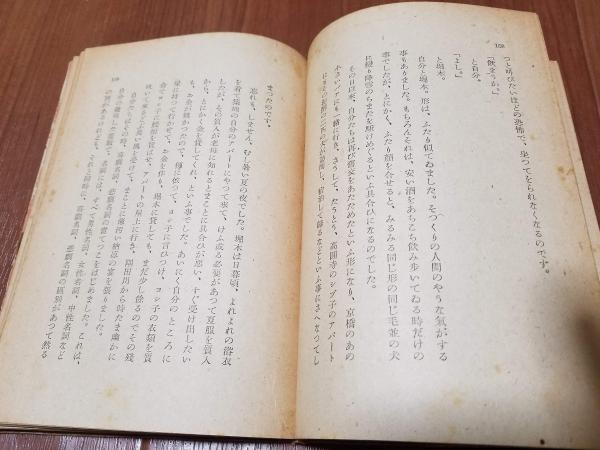 108
つと叫びたいほどの恐怖で、坐つてをられなくなるのです。
「飲まうか。」
と自分。
「よし。」
と堀木。
自分と堀木。形は、ふたり似てゐました。そつくりの人間のやうな気がする
事もありました。もちろんそれは、安い酒をあちこち飲み歩いてゐる時だけの
事でしたが、とにかく、ふたり顔を合せると、みるみる同じ形の同じ毛並の犬
に変り降雪のちまたを駈けめぐるといふ具合ひになるのでした。
その日以来、自分たちは再び旧交をあたためたといふ形になり、京橋のあの
小さいバアにも一緒に行き、さうして、たうとう、高円寺のシヅ子のアパート
にもその泥酔の二匹の犬が訪問し、宿泊して帰るなどといふ事にさへなつてし
109
まつたのです。
忘れも、しません。むし暑い夏の夜でした。堀木は日暮頃、よれよれの浴衣
を着て築地の自分のアパートにやつて来て、けふ或る必要があつて夏服を質入
したが、その質入が老母に知れるとまことに具合ひが悪い、すぐ受け出したい
から、とにかく金を貸してくれ、といふ事でした。あいにく自分のところに
も、お金が無かつたので、例に依つて、ヨシ子に言ひつけ、ヨシ子の衣類を質
屋に持つて行かせてお金を作り、堀木に貸しても、まだ少し余るのでその残
金でヨシ子に焼酎を買はせ、アパートの屋上に行き、隅田川から時たま幽かに
吹いて来るどぶ臭い風を受けて、まことに薄汚い納涼の宴を張りました。
自分たちはその時、喜劇名詞、悲劇名詞の当てつこをはじめました。これは、
自分の発明した遊戯で、名詞には、すべて男性名詞、女性名詞、中性名詞など
の別があるけれども、それと同時に、喜劇名詞、悲劇名詞の区別があつて然る